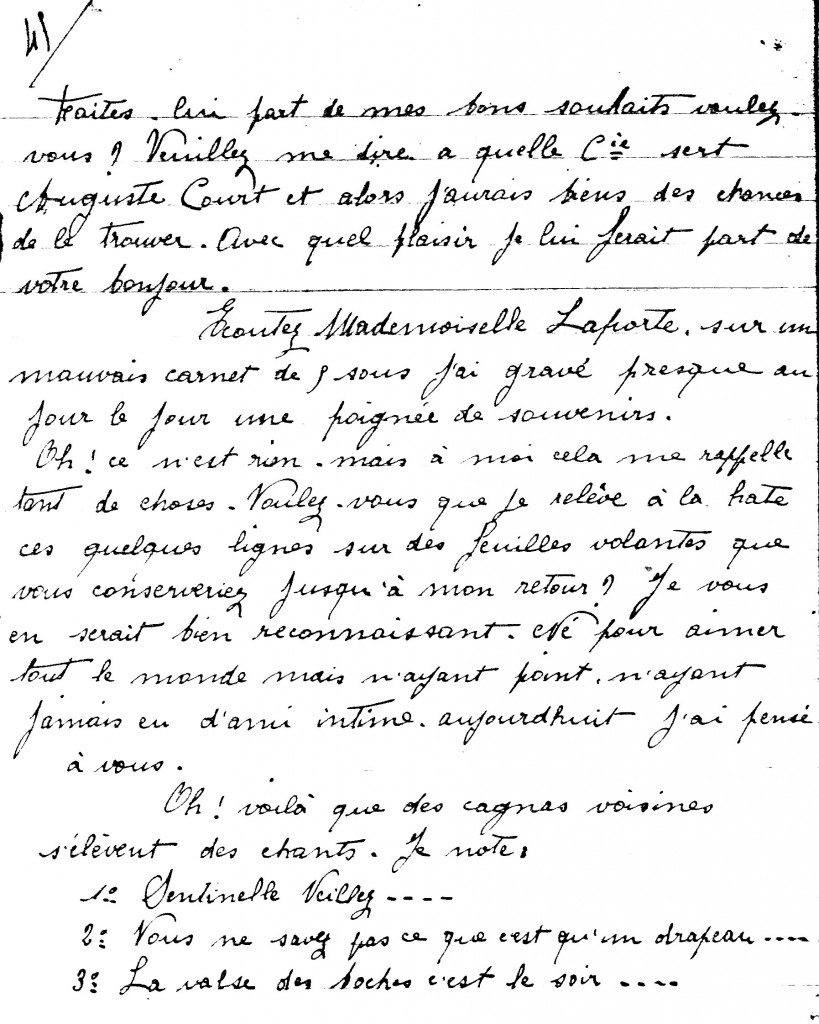 Faites-lui part de mes bons souhaits voulez-
vous ? Veuillez me dire a quelle Cie sert
Auguste Court et alors j'aurais biens des chances
de le trouver. Avec quel plaisir je lui ferait part de
votre bonjour.
Ecoutez Mademoiselle Laporte, sur un
mauvais carnet de 5 sous j'ai gravé presque au
jour le jour une poignée de souvenirs.
Oh ! ce n'est rien. mais à moi cela me rappelle
tant de choses. Voulez-vous que je relève à la hate
ces quelques lignes sur des feuilles volantes que
vous conserveriez jusqu'à mon retour ? Je vous
en serait bien reconnaissant. Né pour aimer
tout le monde mais n'ayant point, n'ayant
jamais eu d'ami intime. aujourdhuit j'ai pensé
à vous.
Oh ! voilà que des cagnas voisines
s'élèvent des chants. Je note :
1º Sentinelle Veillez ----
2º Vous ne savez pas ce que c'est qu'un drapeau ----
3º La valse des boches c'est le soir ----